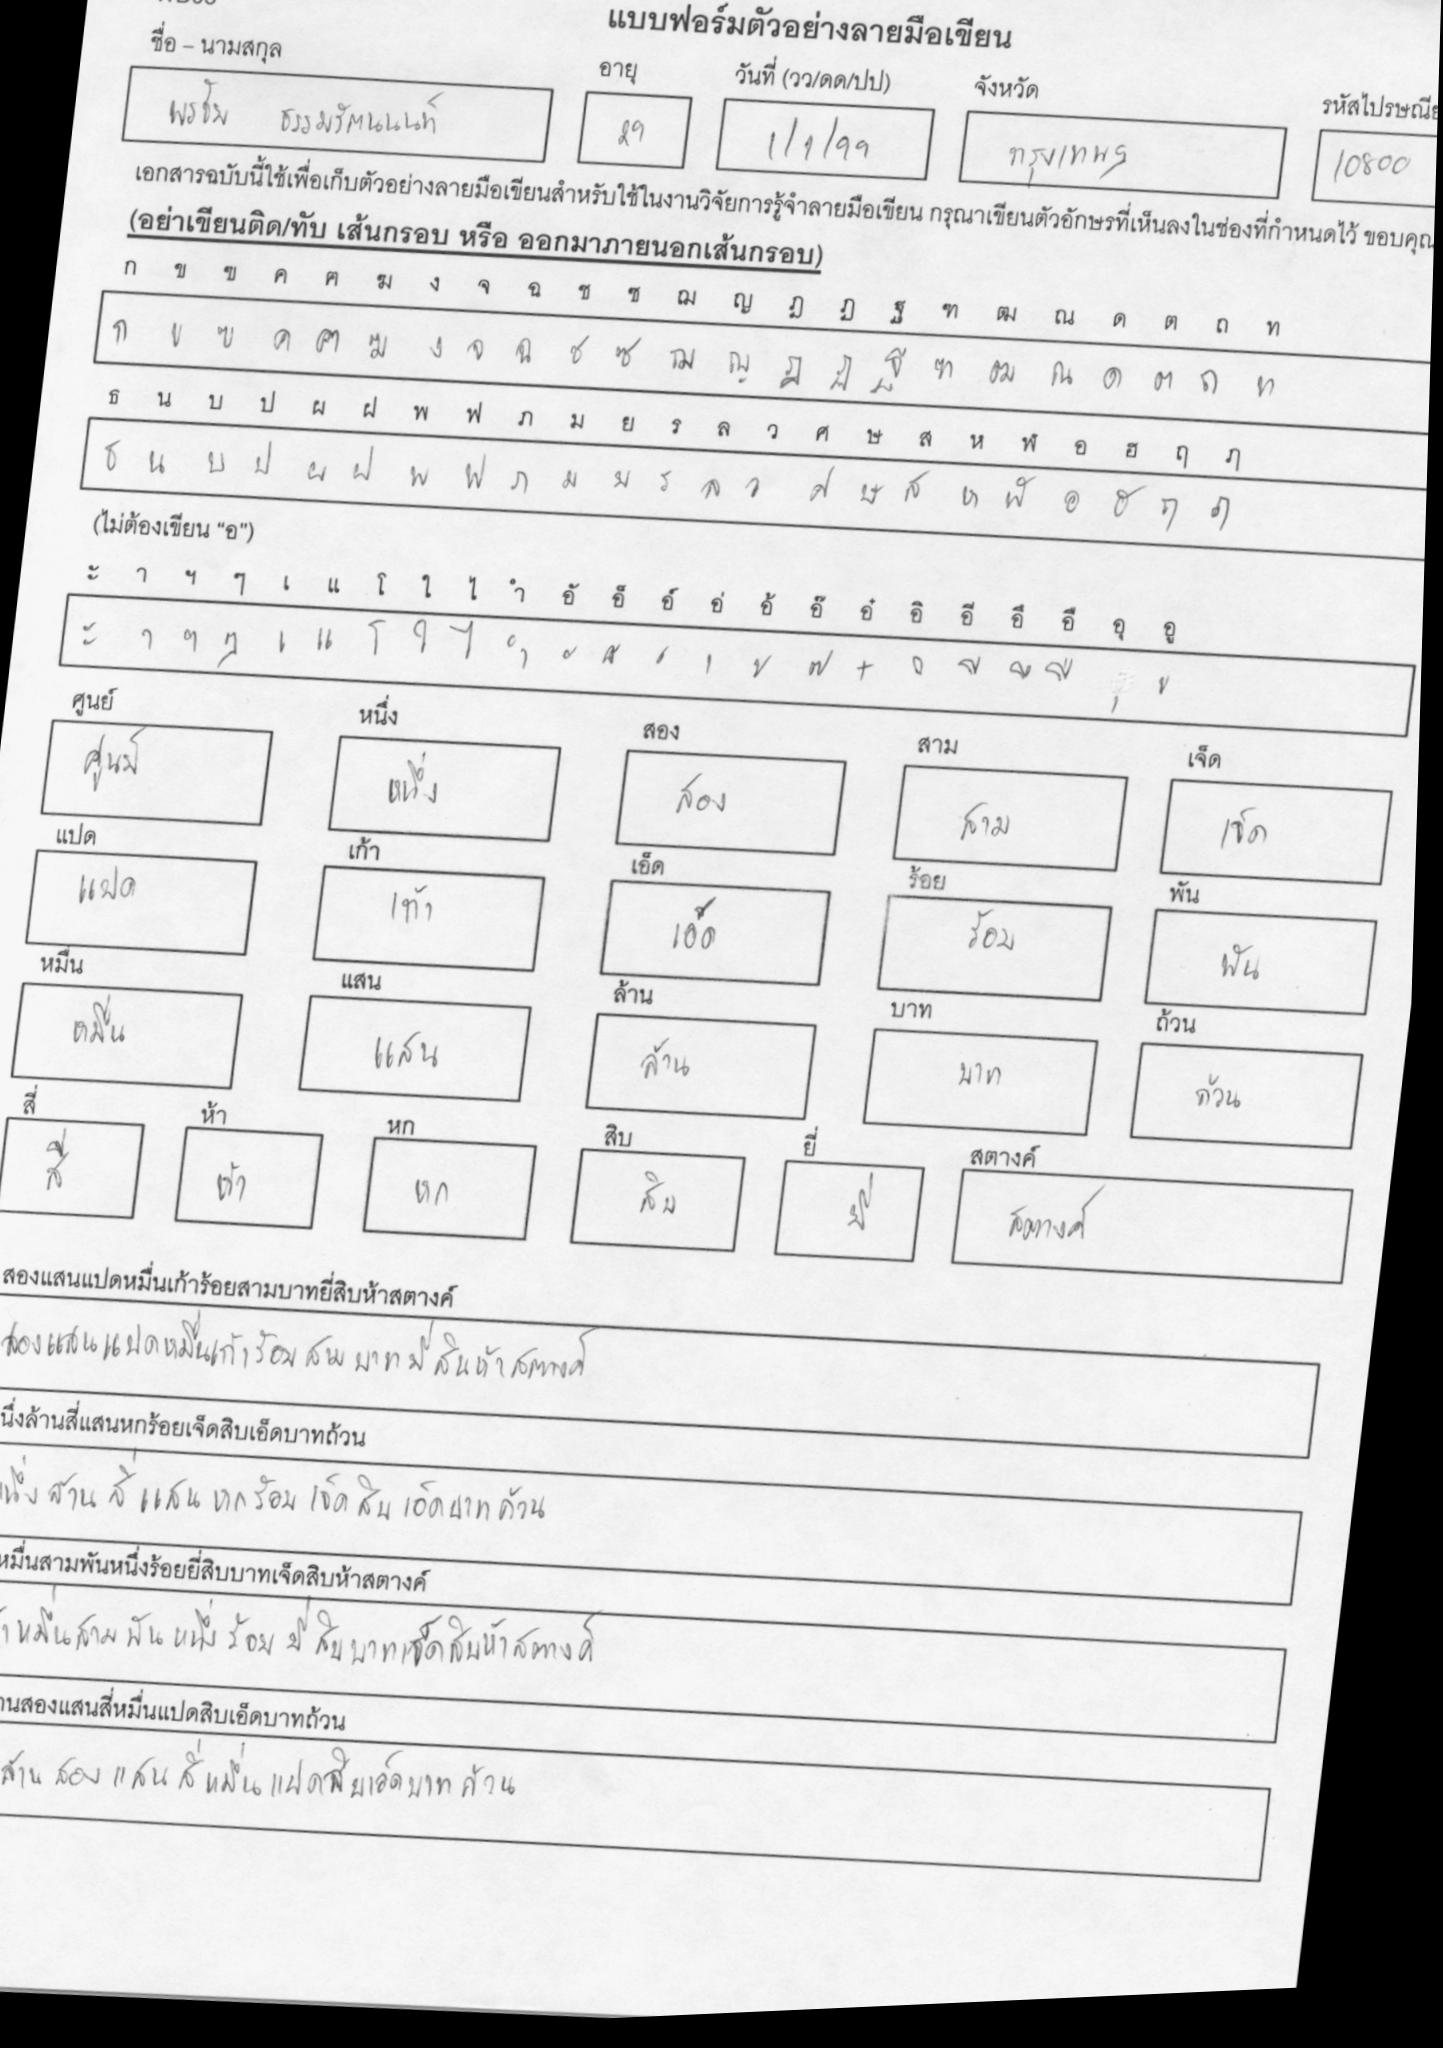 แบบฟอร์มตัวอย่างลายมือเขียน
ชื่อ – นามสกุล อายุ วันที่ (วว/ดด/ปป) จังหวัด รหัสไปรษณีย
พรชัย ธรรมรัตนนนท์ 29 1/1/99 กรุงเทพฯ 10800
เอกสารฉบับนี้ใช้เพื่อเก็บตัวอย่างลายมือเขียนสำหรับใช้ในงานวิจัยการรู้จำลายมือเขียน กรุณาเขียนตัวอักษรที่เห็นลงในช่องที่กำหนดไว้ ขอบคุณ
(อย่าเขียนติด/ทับ เส้นกรอบ หรือ ออกมาภายนอกเส้นกรอบ)
ก ข ฃ ค ฅ ฆ ง จ ฉ ช ซ ฌ ญ ฎ ฏ ฐ ฑ ฒ ณ ด ต ถ ท
ก ข ฃ ค ฅ ฆ ง จ ฉ ช ซ ฌ ญ ฎ ฏ ฐ ฑ ฒ ณ ด ต ถ ท
ธ น บ ป ผ ฝ พ ฟ ภ ม ย ร ล ว ศ ษ ส ห ฬ อ ฮ ฤ ฦ
ธ น บ ป ผ ฝ พ ฟ ภ ม ย ร ล ว ศ ษ ส ห ฬ อ ฮ ฤ ฦ
(ไม่ต้องเขียน "อ")
ะ า ฯ ๆ เ แ โ ใ ไ ำ อั อ็ อ์ อ่ อ้ อ๊ อ๋ อิ อี อึ อื อุ อู
ะ า ฯ ๆ เ แ โ ใ ไ ำ ั ็ ์ ่ ้ ๊ ๋ ิ ี ึ ื ุ ู
ศูนย์ หนึ่ง สอง สาม เจ็ด
ศูนย์ หนึ่ง สอง สาม เจ็ด
แปด เก้า เอ็ด ร้อย พัน
แปด เก้า เอ็ด ร้อย พัน
หมื่น แสน ล้าน บาท ถ้วน
หมื่น แสน ล้าน บาท ถ้วน
สี่ ห้า หก สิบ ยี่ สตางค์
สี่ ห้า หก สิบ ยี่ สตางค์
สองแสนแปดหมื่นเก้าร้อยสามบาทยี่สิบห้าสตางค์
สองแสนแปดหมื่นเก้าร้อยสามบาทยี่สิบห้าสตางค์
นึ่งล้านสี่แสนหกร้อยเจ็ดสิบเอ็ดบาทถ้วน
นึ่งล้านสี่แสนหกร้อยเจ็ดสิบเอ็ดบาทถ้วน
หมื่นสามพันหนึ่งร้อยยี่สิบบาทเจ็ดสิบห้าสตางค์
าหมื่นสามพันหนึ่งร้อยยี่สิบบาทเจ็ดสิบห้าสตางค์
านสองแสนสี่หมื่นแปดสิบเอ็ดบาทถ้วน
ล้านสองแสนสี่หมื่นแปดสิบเอ็ดบาทถ้วน